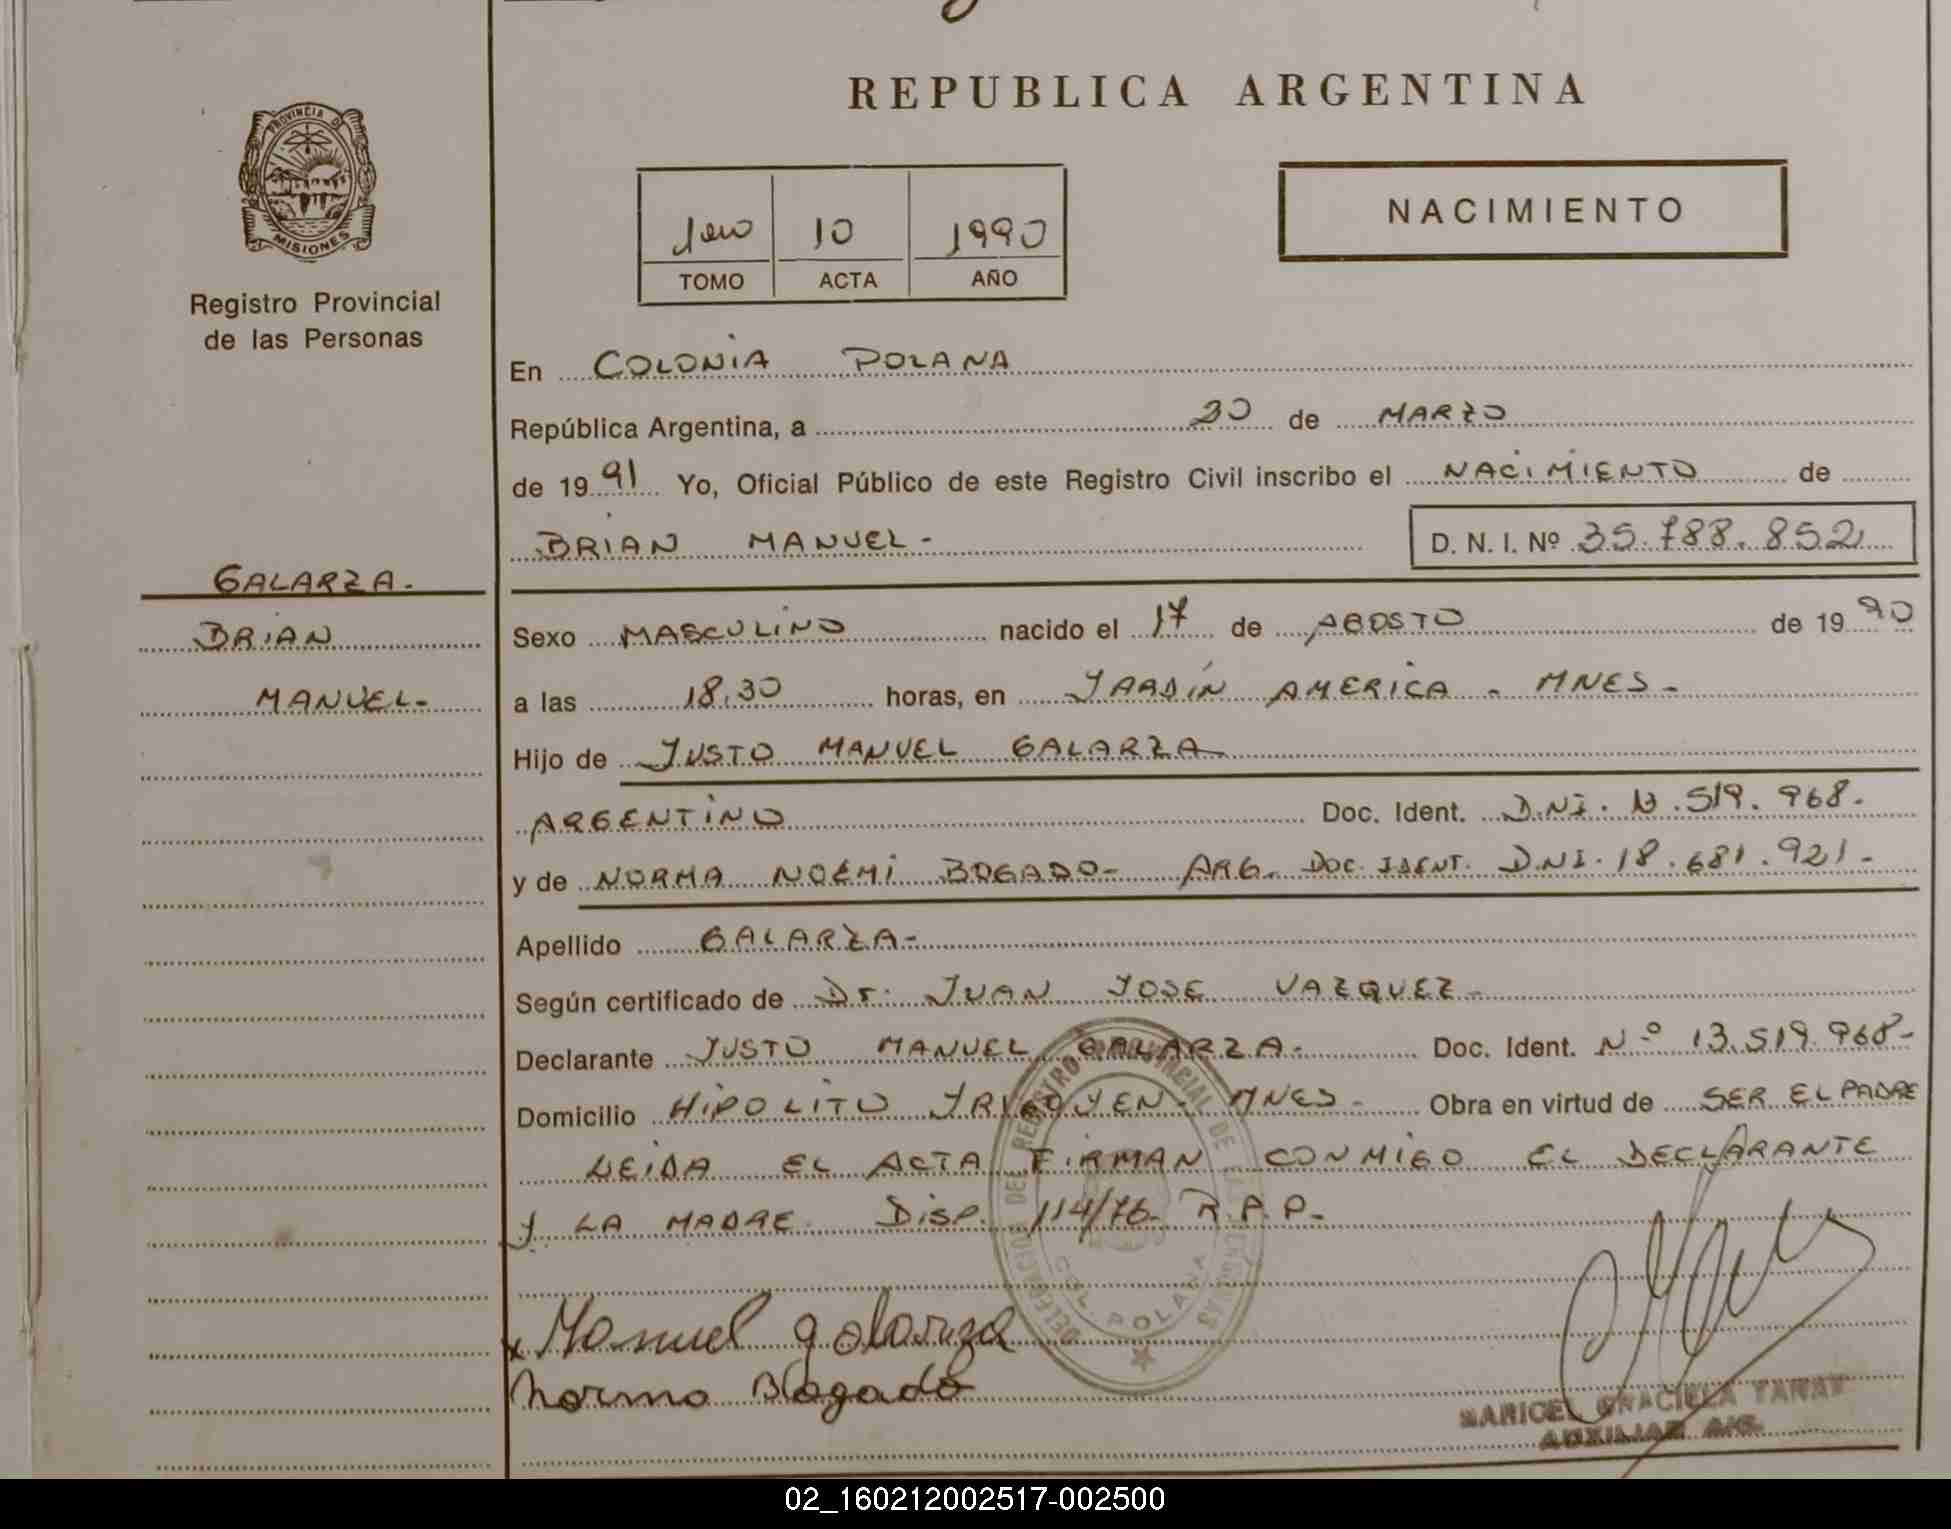 REPUBLICA ARGENTINA
PROVINCIA DE
MISIONES
Registro Provincial
de las Personas
1ero 10 1990
TOMO ACTA AÑO
NACIMIENTO
En COLONIA POLANA
República Argentina, a 20 de MARZO
de 1991 Yo, Oficial Público de este Registro Civil inscribo el NACIMIENTO de
BRIAN MANUEL- D. N. I. Nº 35.788.852
GALARZA.
BRIAN
MANUEL-
Sexo MASCULINO nacido el 17 de AGOSTO de 1990
a las 18.30 horas, en JARDIN AMERICA - MNES-
Hijo de JUSTO MANUEL GALARZA
ARGENTINO Doc. Ident. D.NI. 13.519.968-
y de NORMA NOEMI BOGADO- ARG. DOC. IDENT. D.NI. 18.681.921-
Apellido GALARZA-
Según certificado de Dr. JUAN JOSE VAZQUEZ-
Declarante JUSTO MANUEL GALARZA- Doc. Ident. Nº 13.519.968-
Domicilio HIPOLITO YRIGOYEN- MNES- Obra en virtud de SER EL PADRE
LEIDA EL ACTA FIRMAN CONMIGO EL DECLARANTE
Y LA MADRE. DISP. 114/76- R.P.P.-
DELEGACION DEL REGISTRO PROVINCIAL DE LAS PERSONAS
COL. POLANA
x Manuel galarza
Norma Bogado
MARICEL GRACIELA
AUXILIAR
02_160212002517-002500